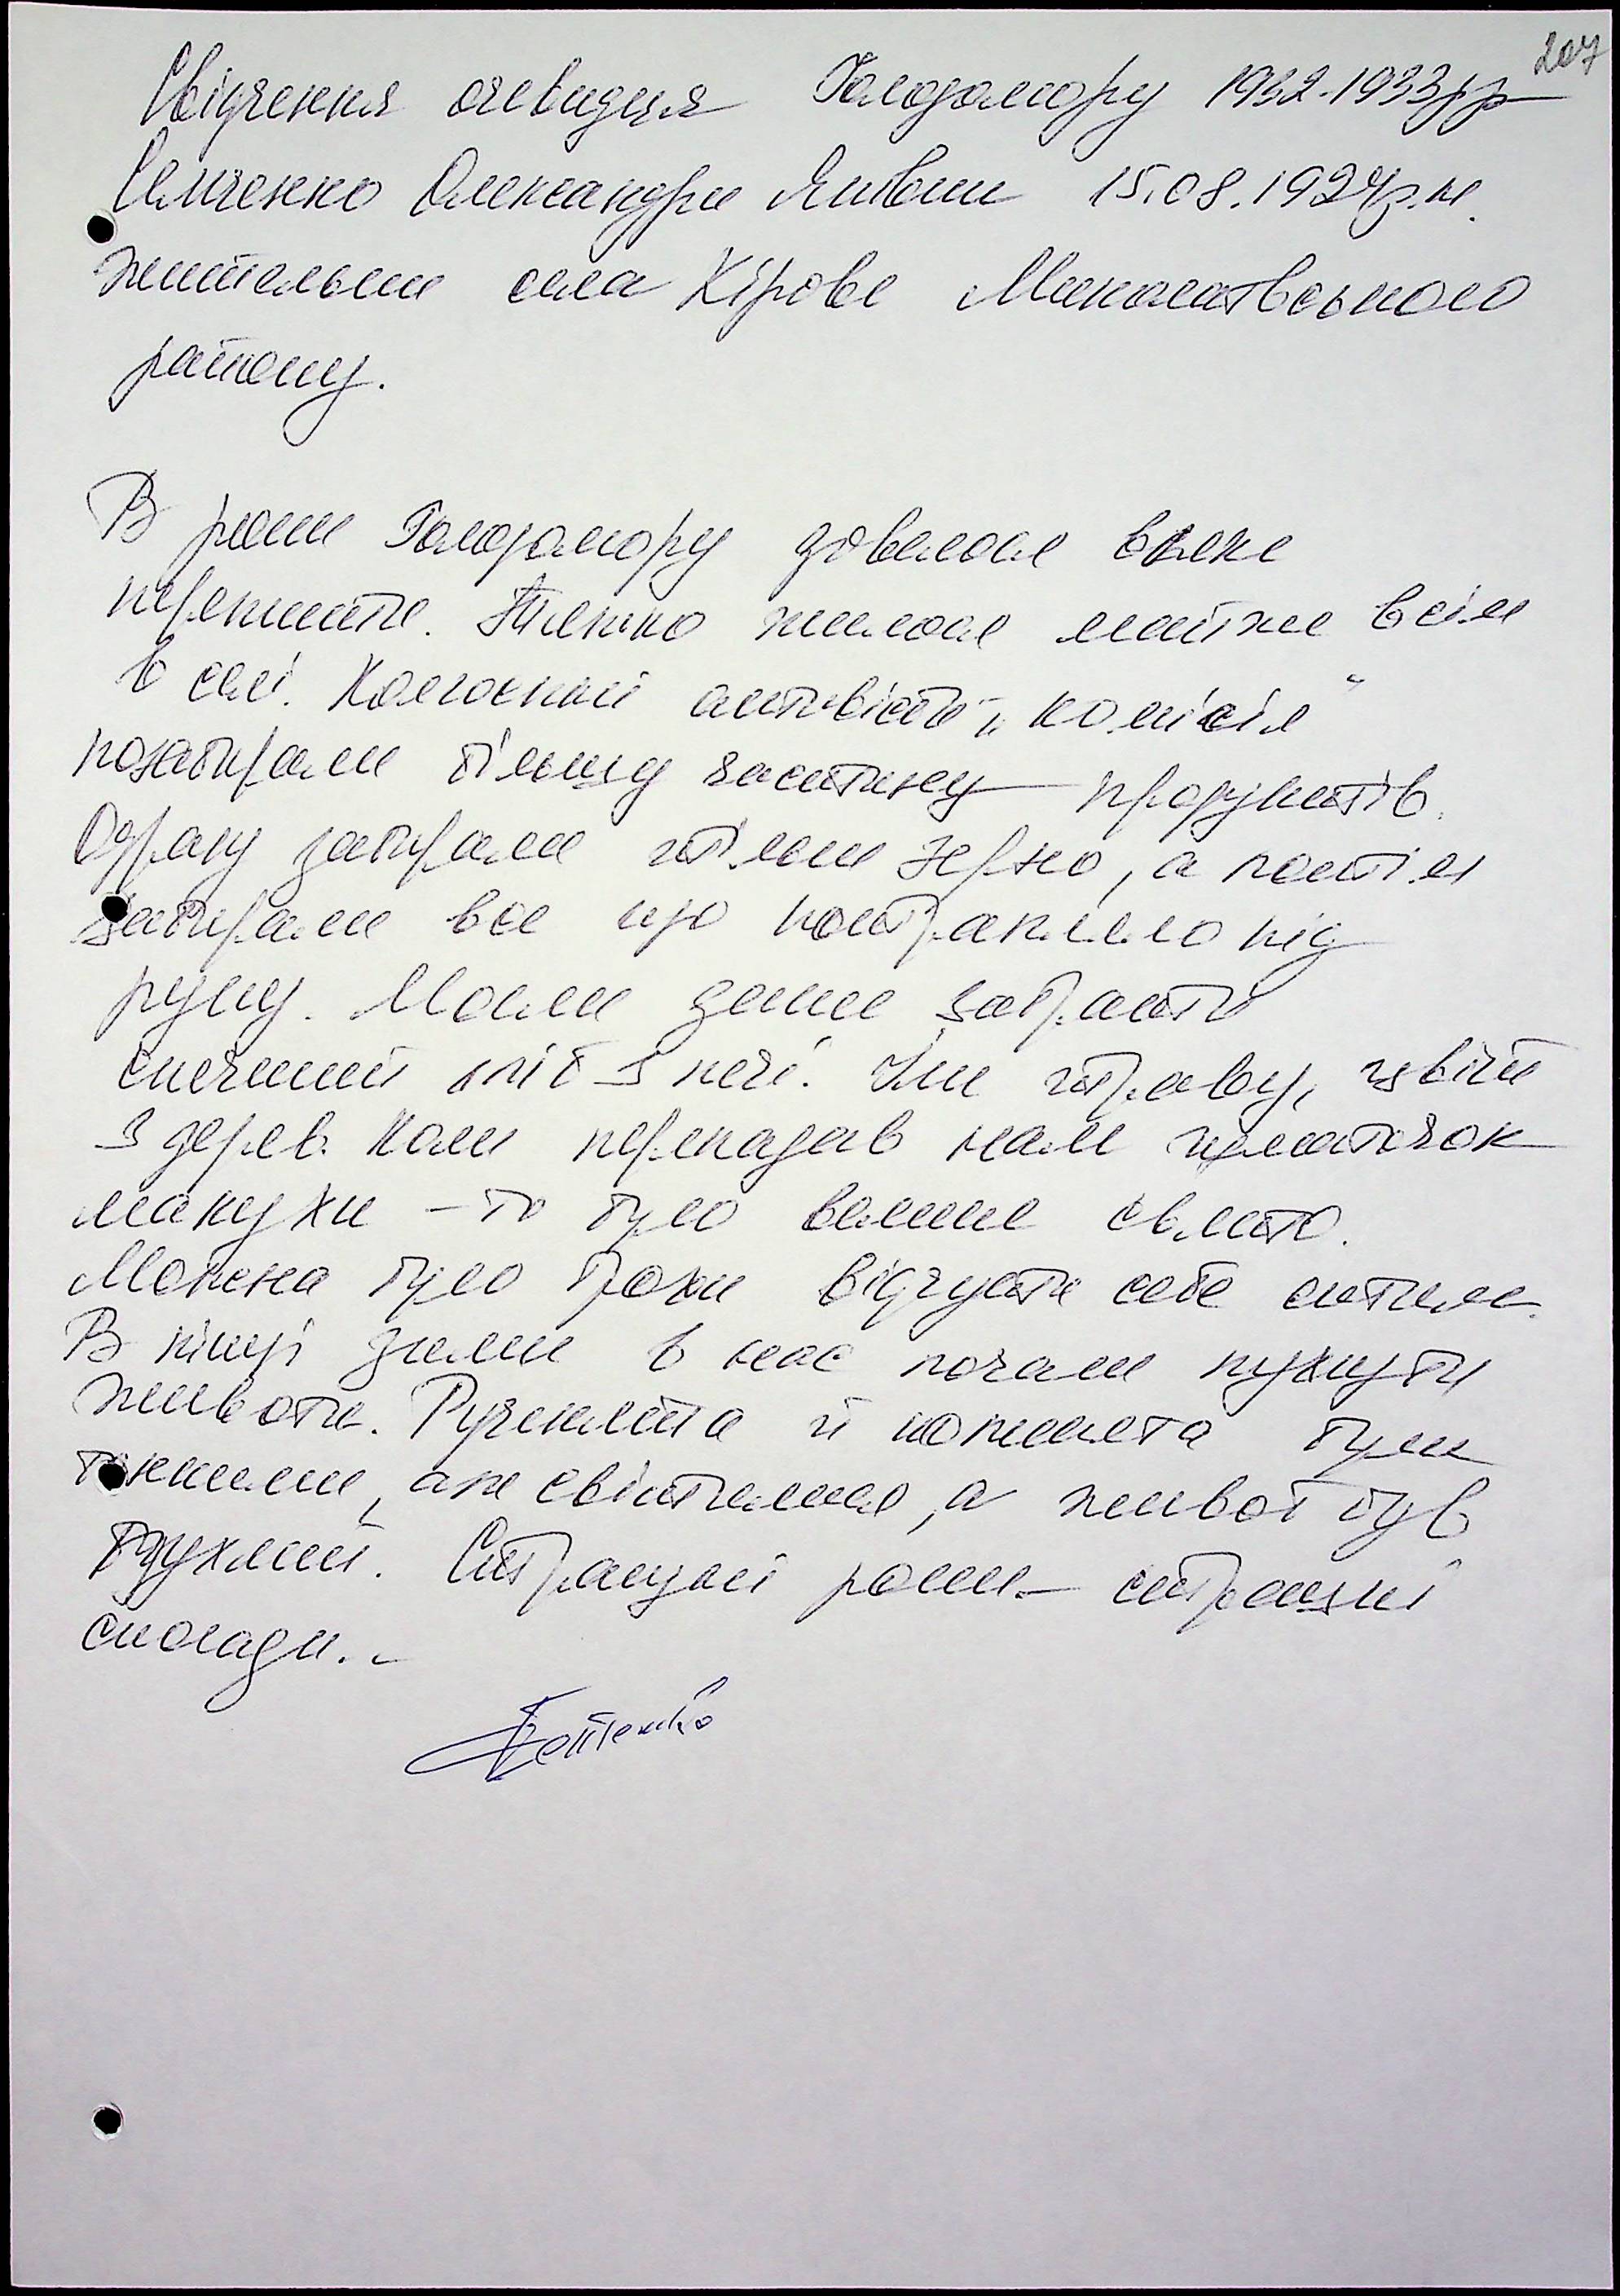 207
Свідчення очевидця Голодомору 1932-1933рр
Семченко Олександри Яківни 15.08.1924р.н.
жительки села Кірове Миколаївського
району.
В роки Голодомору довелося важко
пережити. Тяжко жилося майже всім
в селі. Колгоспний активісти, „комісія"
позабирали більшу частину продуктів.
Одразу забирали тільки зерно, а потім
забирали все що потрапляло під
руку. Могли даже забрати
спечений хліб з печі. Їли траву, цвіт
з дерев. Коли перепадав нам шматочок
макухи – то було велике свято.
Можна було трохи відчути себе ситими.
В кінці зими в нас почали пухнути
животи. Рученята й ноженята були
тонкими, аж світилися, а живот був
бдухлий. Страшні роки – страшні
спогади..